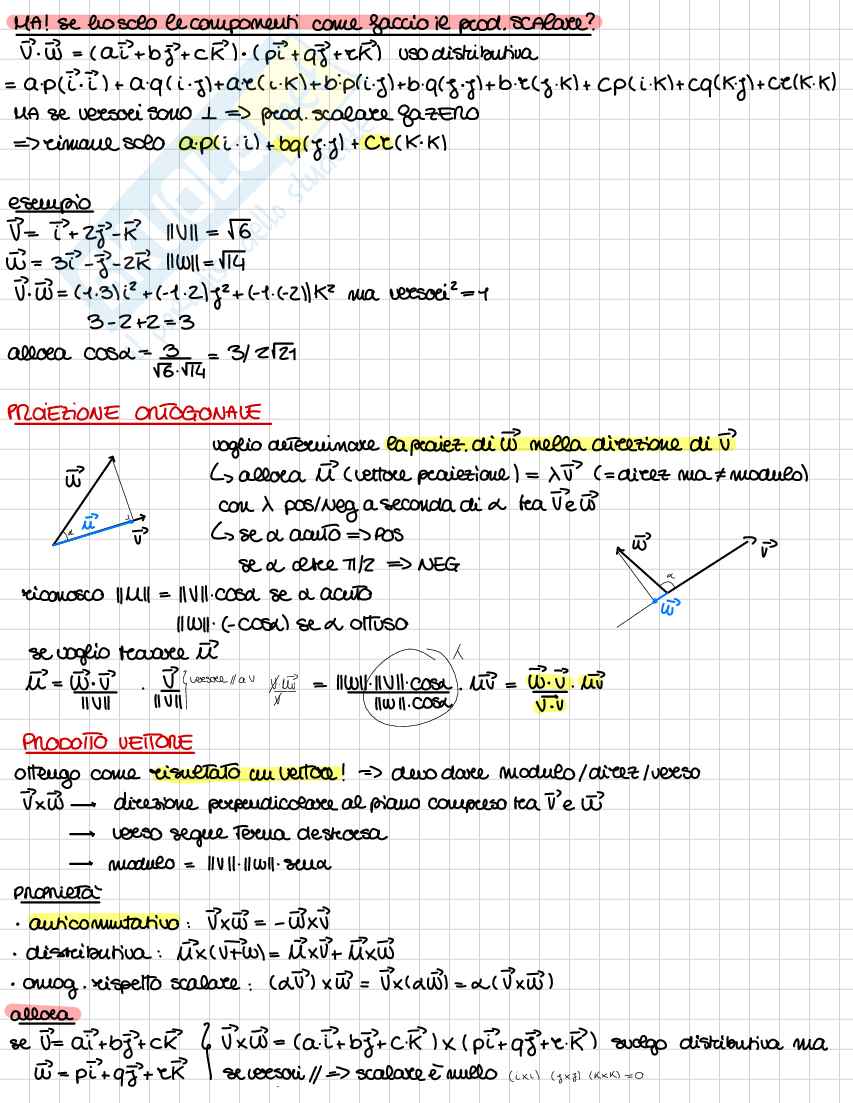 MA! se ho solo le componenti come faccio il prod. scalare?
V⃗·w⃗ = (ai⃗+bj⃗+cK⃗)·(pi⃗+qj⃗+rK⃗) uso distributiva
= a·p(i⃗·i⃗)+a·q(i·j)+ar(i·K)+b·p(i·j)+b·q(j·j)+b·r(j·K)+cp(i·K)+cq(K·j)+cr(K·K)
MA se versori sono ⊥ => prod. scalare fa ZERO
=> rimane solo a·p(i·i)+bq(j·j)+cr(K·K)
esempio
V⃗= i⃗+2j⃗-K⃗ ||V||=√6
w⃗= 3i⃗-j⃗-2K⃗ ||w||=√14
V⃗·w⃗=(1·3)i²+(-1·2)j²+(-1·(-2))K² ma versori²=1
3-2+2=3
allora cosα= 3/√6·√14 = 3/2√21
PROIEZIONE ORTOGONALE
voglio determinare la proiez. di w⃗ nella direzione di V⃗
↳ allora u⃗ (vettore proiezione) = λV⃗ (=direz ma ≠ modulo)
con λ pos/neg a seconda di α tra V⃗ e w⃗
↳ se α acuto => POS
se α oltre π/2 => NEG
w⃗
α
u⃗
V⃗
w⃗
α
V⃗
w⃗
riconosco ||u|| = ||V||·cosα se α acuto
||w||·(-cosα) se α ottuso
se voglio trovare u⃗
λ
u⃗ = w⃗·V⃗/||V|| · V⃗/||V|| versore // a V = ||w||·||V||·cosα/||w||·cosα · u⃗v = w⃗·V⃗/V·V · u⃗v
PRODOTTO VETTORE
ottengo come risultato un vettore! => devo dare modulo/direz/verso
V⃗xw⃗ → direzione perpendicolare al piano compreso tra V⃗ e w⃗
→ verso segue Terna destrorsa
→ modulo = ||V||·||w||·senα
proprietà:
· anticommutativo: V⃗xw⃗ = -w⃗xV⃗
· distributiva: u⃗x(V+w)= u⃗xV⃗+ u⃗xw⃗
· omog. rispetto scalare: (αV⃗)xw⃗ = V⃗x(αw⃗)=α(V⃗xw⃗)
allora
se V⃗= ai⃗+bj⃗+cK⃗ V⃗xw⃗ = (a·i⃗+bj⃗+c·K⃗)x(pi⃗+qj⃗+r·K⃗) svolgo distributiva ma
w⃗ = pi⃗+qj⃗+rK⃗ se versori // => scalare è nullo (ixi) (jxj) (KxK)=0